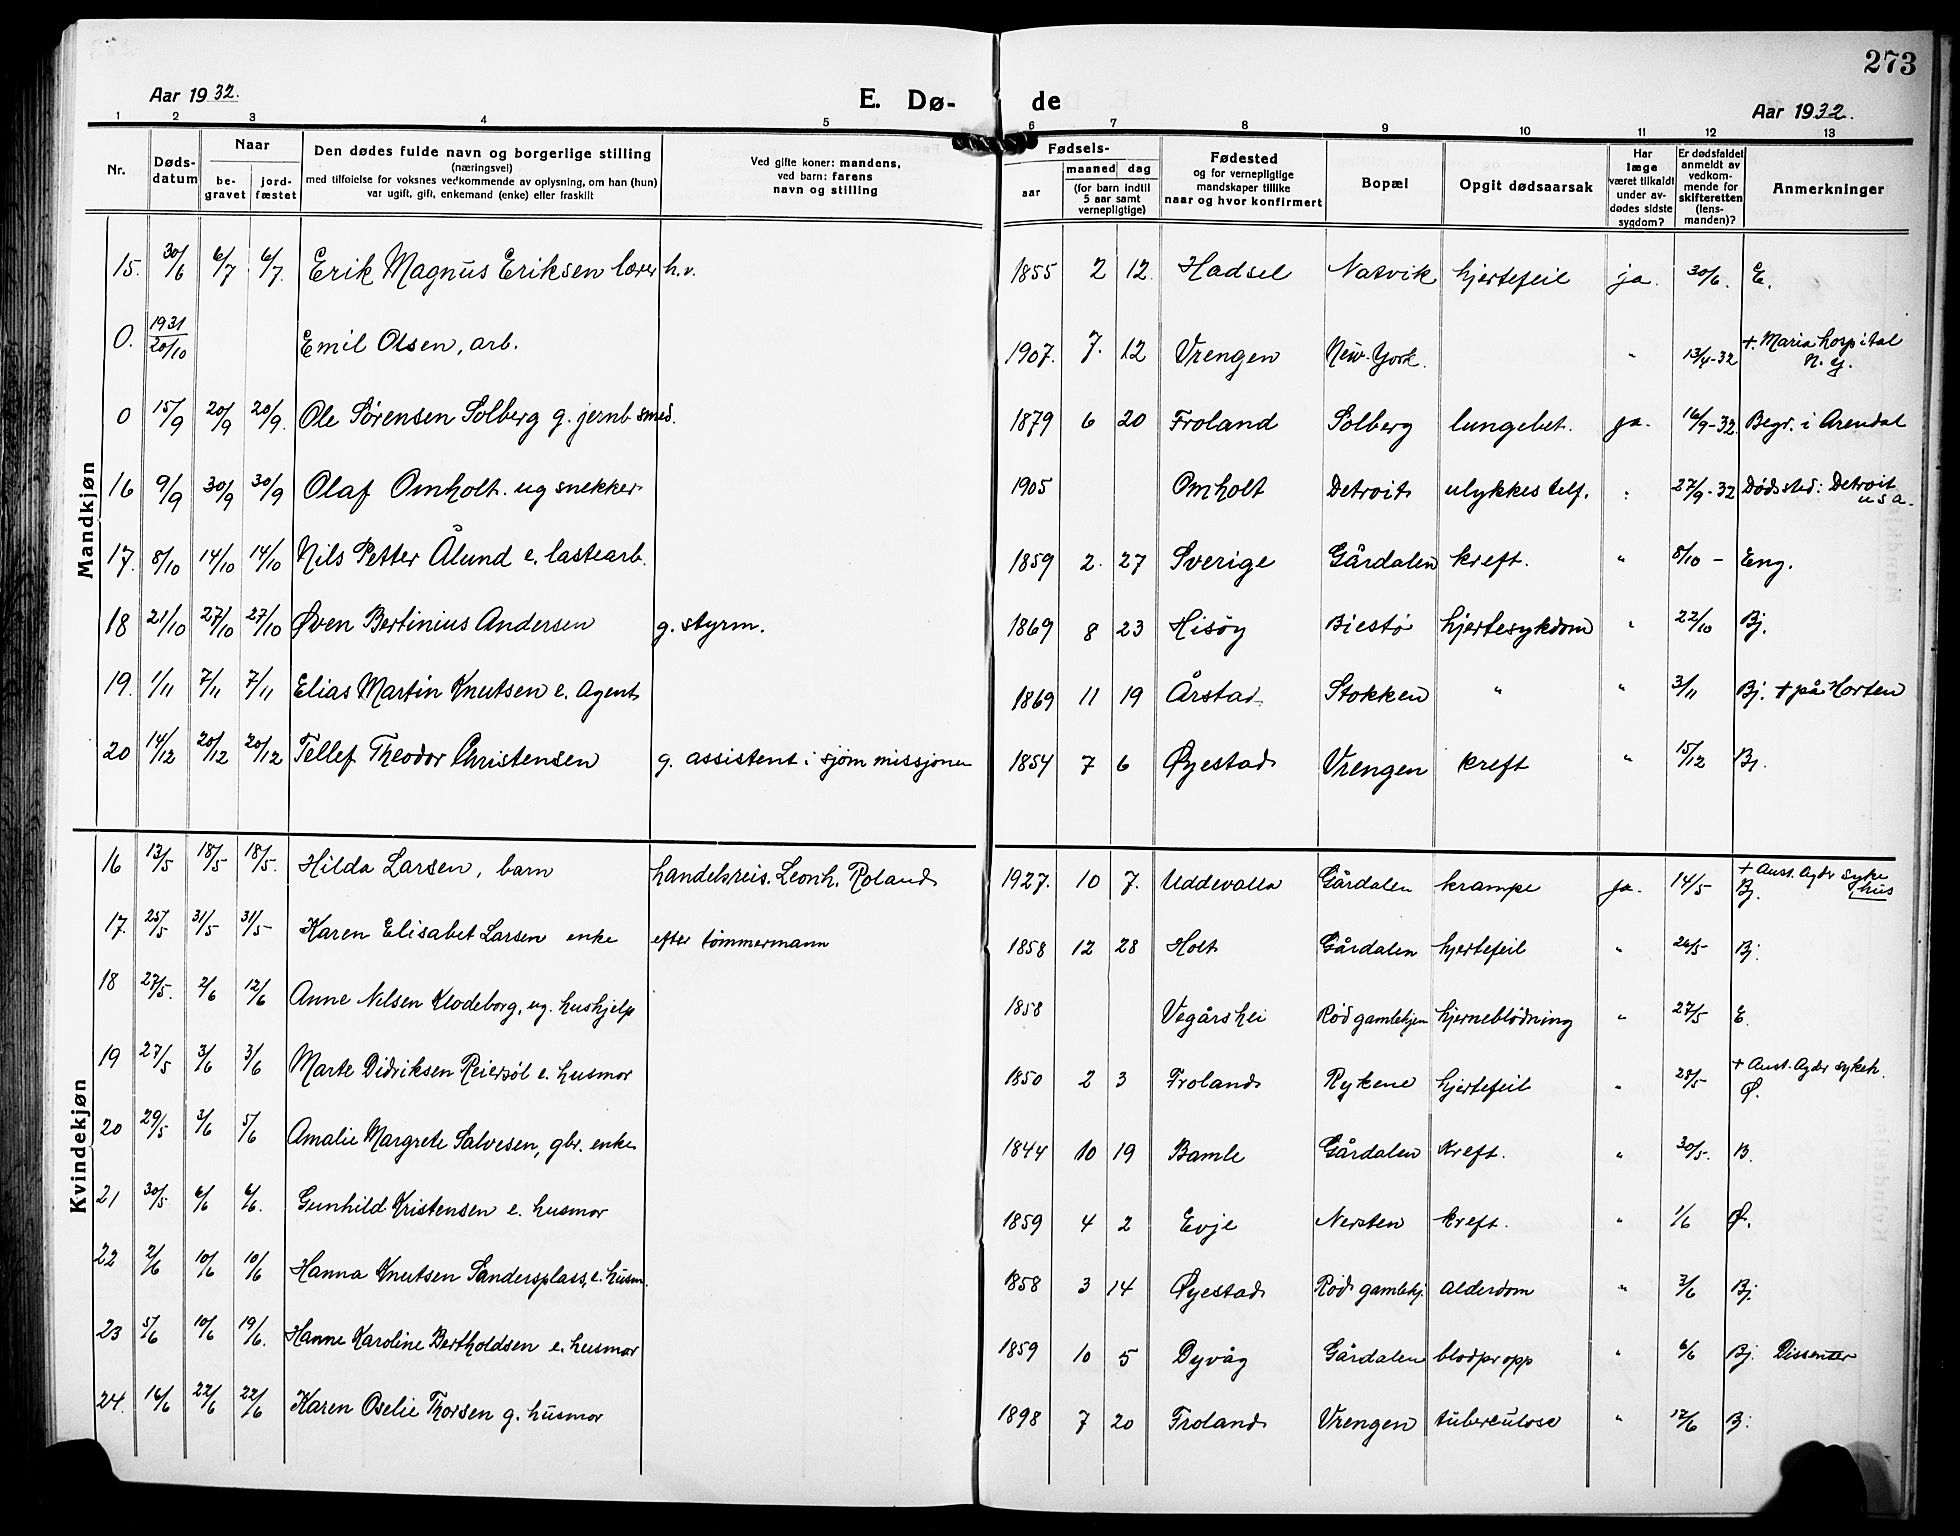 273
Aar 1932.
E. Dø-
de
Aar 1932.
1 2 3 4 5 6 7 8 9 10 11 12 13
Nr.
Døds-
datum
Naar
be-
gravet
jord-
fæstet
Den dødes fulde navn og borgerlige stilling
(næringsvei)
med tilføielse for voksnes vedkommende av oplysning, om han (hun)
var ugift, gift, enkemand (enke) eller fraskilt
Ved gifte koner: mandens,
ved barn: farens
navn og stilling
Fødsels-
aar
maaned
dag
(for barn indtil
5 aar samt
vernepligtige)
Fødested
og for vernepligtige
mandskaper tillike
naar og hvor konfirmert
Bopæl
Opgit dødsaarsak
Har
læge
været tilkaldt
under av-
dødes sidste
sygdom?
Er dødsfaldet
anmeldt av
vedkom-
mende for
skifteretten
(lens-
manden)?
Anmerkninger
Mandkjøn
15. 30/6 6/7 6/7. Erik Magnus Eriksen lærer h.v. 1855 2 12. Hadsel Natvik hjertefeil ja. 30/6. E.
0. 1931 20/10 Emil Olsen, arb. 1907. 7. 12 Vrengen New-York. " 13/4-32 +. Maria hospital
N.Y.
0 15/9 20/9 20/9. Ole Sørensen Solberg g. jernb. smed. 1879 6 20 Froland Solberg lungebet. ja. 16/9-32. Begr. i Arendal
16 9/9 30/9 30/9 Olaf Omholt. ug snekker 1905 Omholt Detroit ulykkestilf. " 27/9-32 Dødsted: Detroit
USA.
17. 8/10 14/10 14/10 Nils Petter Ålund e. lastearb. 1859 2. 27 Sverige Gårdalen kreft. " 8/10 - Eng.
18 21/10 27/10 27/10 Øven Bertinius Andersen g. styrm. 1869 8 23 Hisøy Biestø hjertesykdom " 22/10 Bj.
19. 1/11 7/11 7/11 Elias Martin Knutsen e. Agent 1869 11 19 Årstad Stokken " " 3/11 Bj. + på Horten
20 14/12 20/12 20/12 Tellef Theodor Christensen g. assistent i sjøm missjonen 1854 7 6 Øyestad Vrengen kreft " 15/12 Bj.
Kvindekjøn
16 13/5 18/5 18/5. Hilda Larsen, barn handelsreis. Leonh. Roland 1927. 10 7. Uddevalla Gårdalen krampe ja. 14/5 + Aust. Agder syke
hus
Bj.
17. 25/5 31/5 31/5 Karen Elisabet Larsen enke efter tømmermann 1858 12 28 Holt Gårdalen hjertefeil " 26/5 Bj.
18 27/5. 2/6 12/6 Anne Nilsen Klodeborg, ug. hushjelp 1858 Vegårshei Rød gamlehjem hjerneblødning " 27/5 E.
19 27/5 3/6 3/6 Marte Didriksen Reiersøl e. husmor 1850 2 3 Froland Rykene hjertefeil " 28/5 + Aust. Agder sykeh.
Ø.
20 29/5 3/6 5/6 Amalie Margrete Salvesen, gbr. enke 1844 10 19 Bamle Gårdalen Kreft. " 30/5. B.
21 30/5 6/6 6/6. Gunhild Kristensen e. husmor 1859 4 2 Evje Nersten kreft. " 1/6 Ø.
22 2/6 10/6 10/6 Hanna Knutsen Sandersplass, e. husm. 1858 3 14 Øyestad Rød gamlehj. Alderdom " 3/6 Bj.
23 5/6 10/6 19/6. Hanne Karoline Bertholdsen e. husmor 1859 10 5 Dyvåg Gårdalen blodpropp " 6/6 Bj. Dissenter
24. 16/6 22/6 22/6 Karen Oselie Thorsen g. husmor 1898 7 20 Froland Vrengen tuberculose " 17/6 Bj.